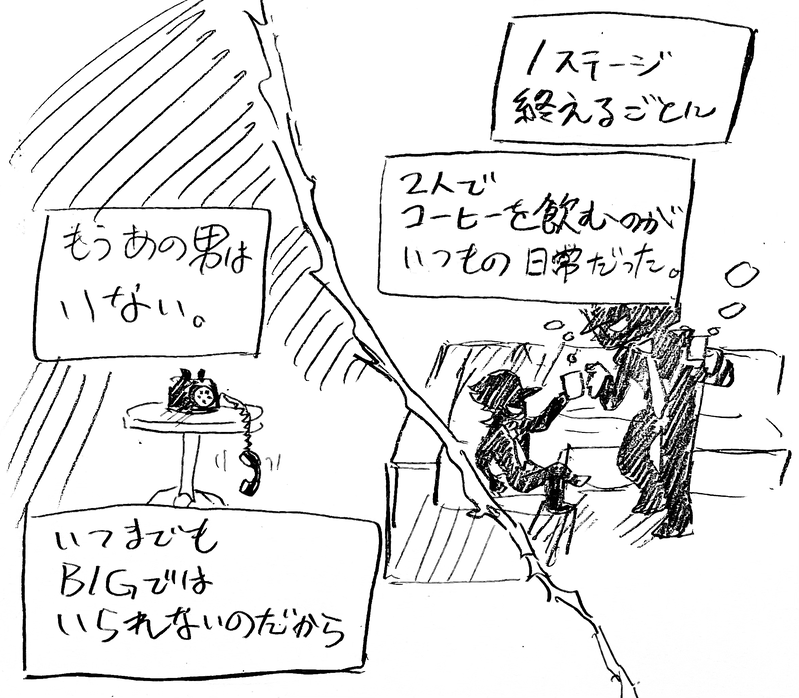 1ステージ
終えるごとに
2人で
コーヒーを飲むのが
いつもの日常だった。
もうあの男は
いない。
いつまでも
BIGでは
いられないのだから